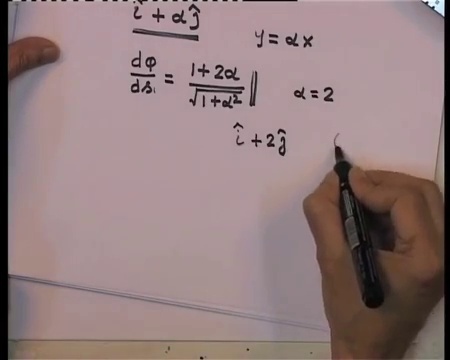 î + αĵ
y = αx
dφ/ds = (1+2α)/√(1+α²)
α = 2
î + 2ĵ